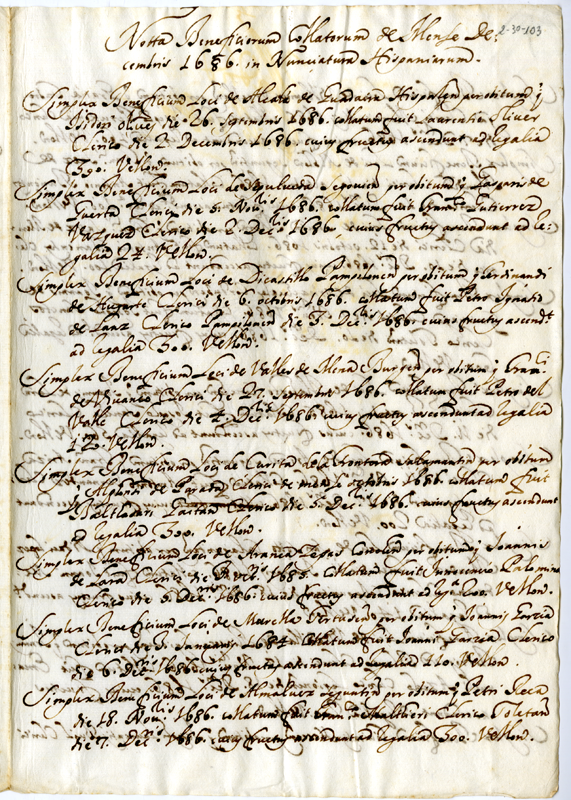 2-30-103
Notta Beneficiorum Collatorum de Mense De:
cembris 1686. in Nunciatura Hispaniarum.
Simplex Beneficium Loci de Alcala de Guadaira Hispalen per obitum q
Isidori die 26. Septembris 1686. collatum fuit Laurentio Oliver
Clerico die 2. Decembris 1686. cuius fructus ascendunt ad Regalia
390. Vellon.
Simplex Beneficium Loci de Sepulveda per obitum q Gasparis de
Huerta Clerici die 5. Nov.bris 1686. collatum fuit Gutierrez
Vazquez Clerico die 2. Dec.bris 1686. cuius fructus ascendunt ad Re:
galia 27. Vellon.
Simplex Beneficium Loci de Dicastillo Pampilonen per obitum q Ferdinandi
de Clerici die 6. octobris 1686. collatum fuit Petro Ignatio
de Lanz Clerico Pampilonen die 3. Dec.bris 1686. cuius fructus ascend.t
ad Regalia 300. Vellon.
Simplex Beneficium Loci de Valles de Mena Burgen per obitum q
de Vivanco Clerici die 27. Septembris 1686. collatum fuit Petro del
Valle Clerico die 4. Dec.bris 1686. cuius fructus ascendunt ad Regalia
120. Vellon.
Simplex Beneficium Loci de la Frontera Salamantin per obitum
q Alphonsi de Clerici de mense octobris 1686. collatum fuit
Balthasari Clerico die 5. Dec.bris 1686. cuius fructus ascendunt
ad Regalia 300. Vellon.
Simplex Beneficium Loci de per obitum q Joannis
de Clerici die collatum fuit Innocencio Palomino
Clerico die 6. Dec.bris 1686. cuius fructus ascendunt ad 200. Vellon.
Simplex Beneficium Loci de per obitum q Joannis Garcia
Clerici die 3. Januarii 1684. collatum fuit Joanni Garzia Clerico
die 6. Dec.bris 1686. cuius fructus ascendunt ad Regalia 110. Vellon.
Simplex Beneficium Loci de Seguntin per obitum q Petri
die 18. Nov.bris 1686. collatum fuit Clerico Toletan
die 7. Dec.bris 1686. cuius fructus ascendunt ad Regalia 300. Vellon.